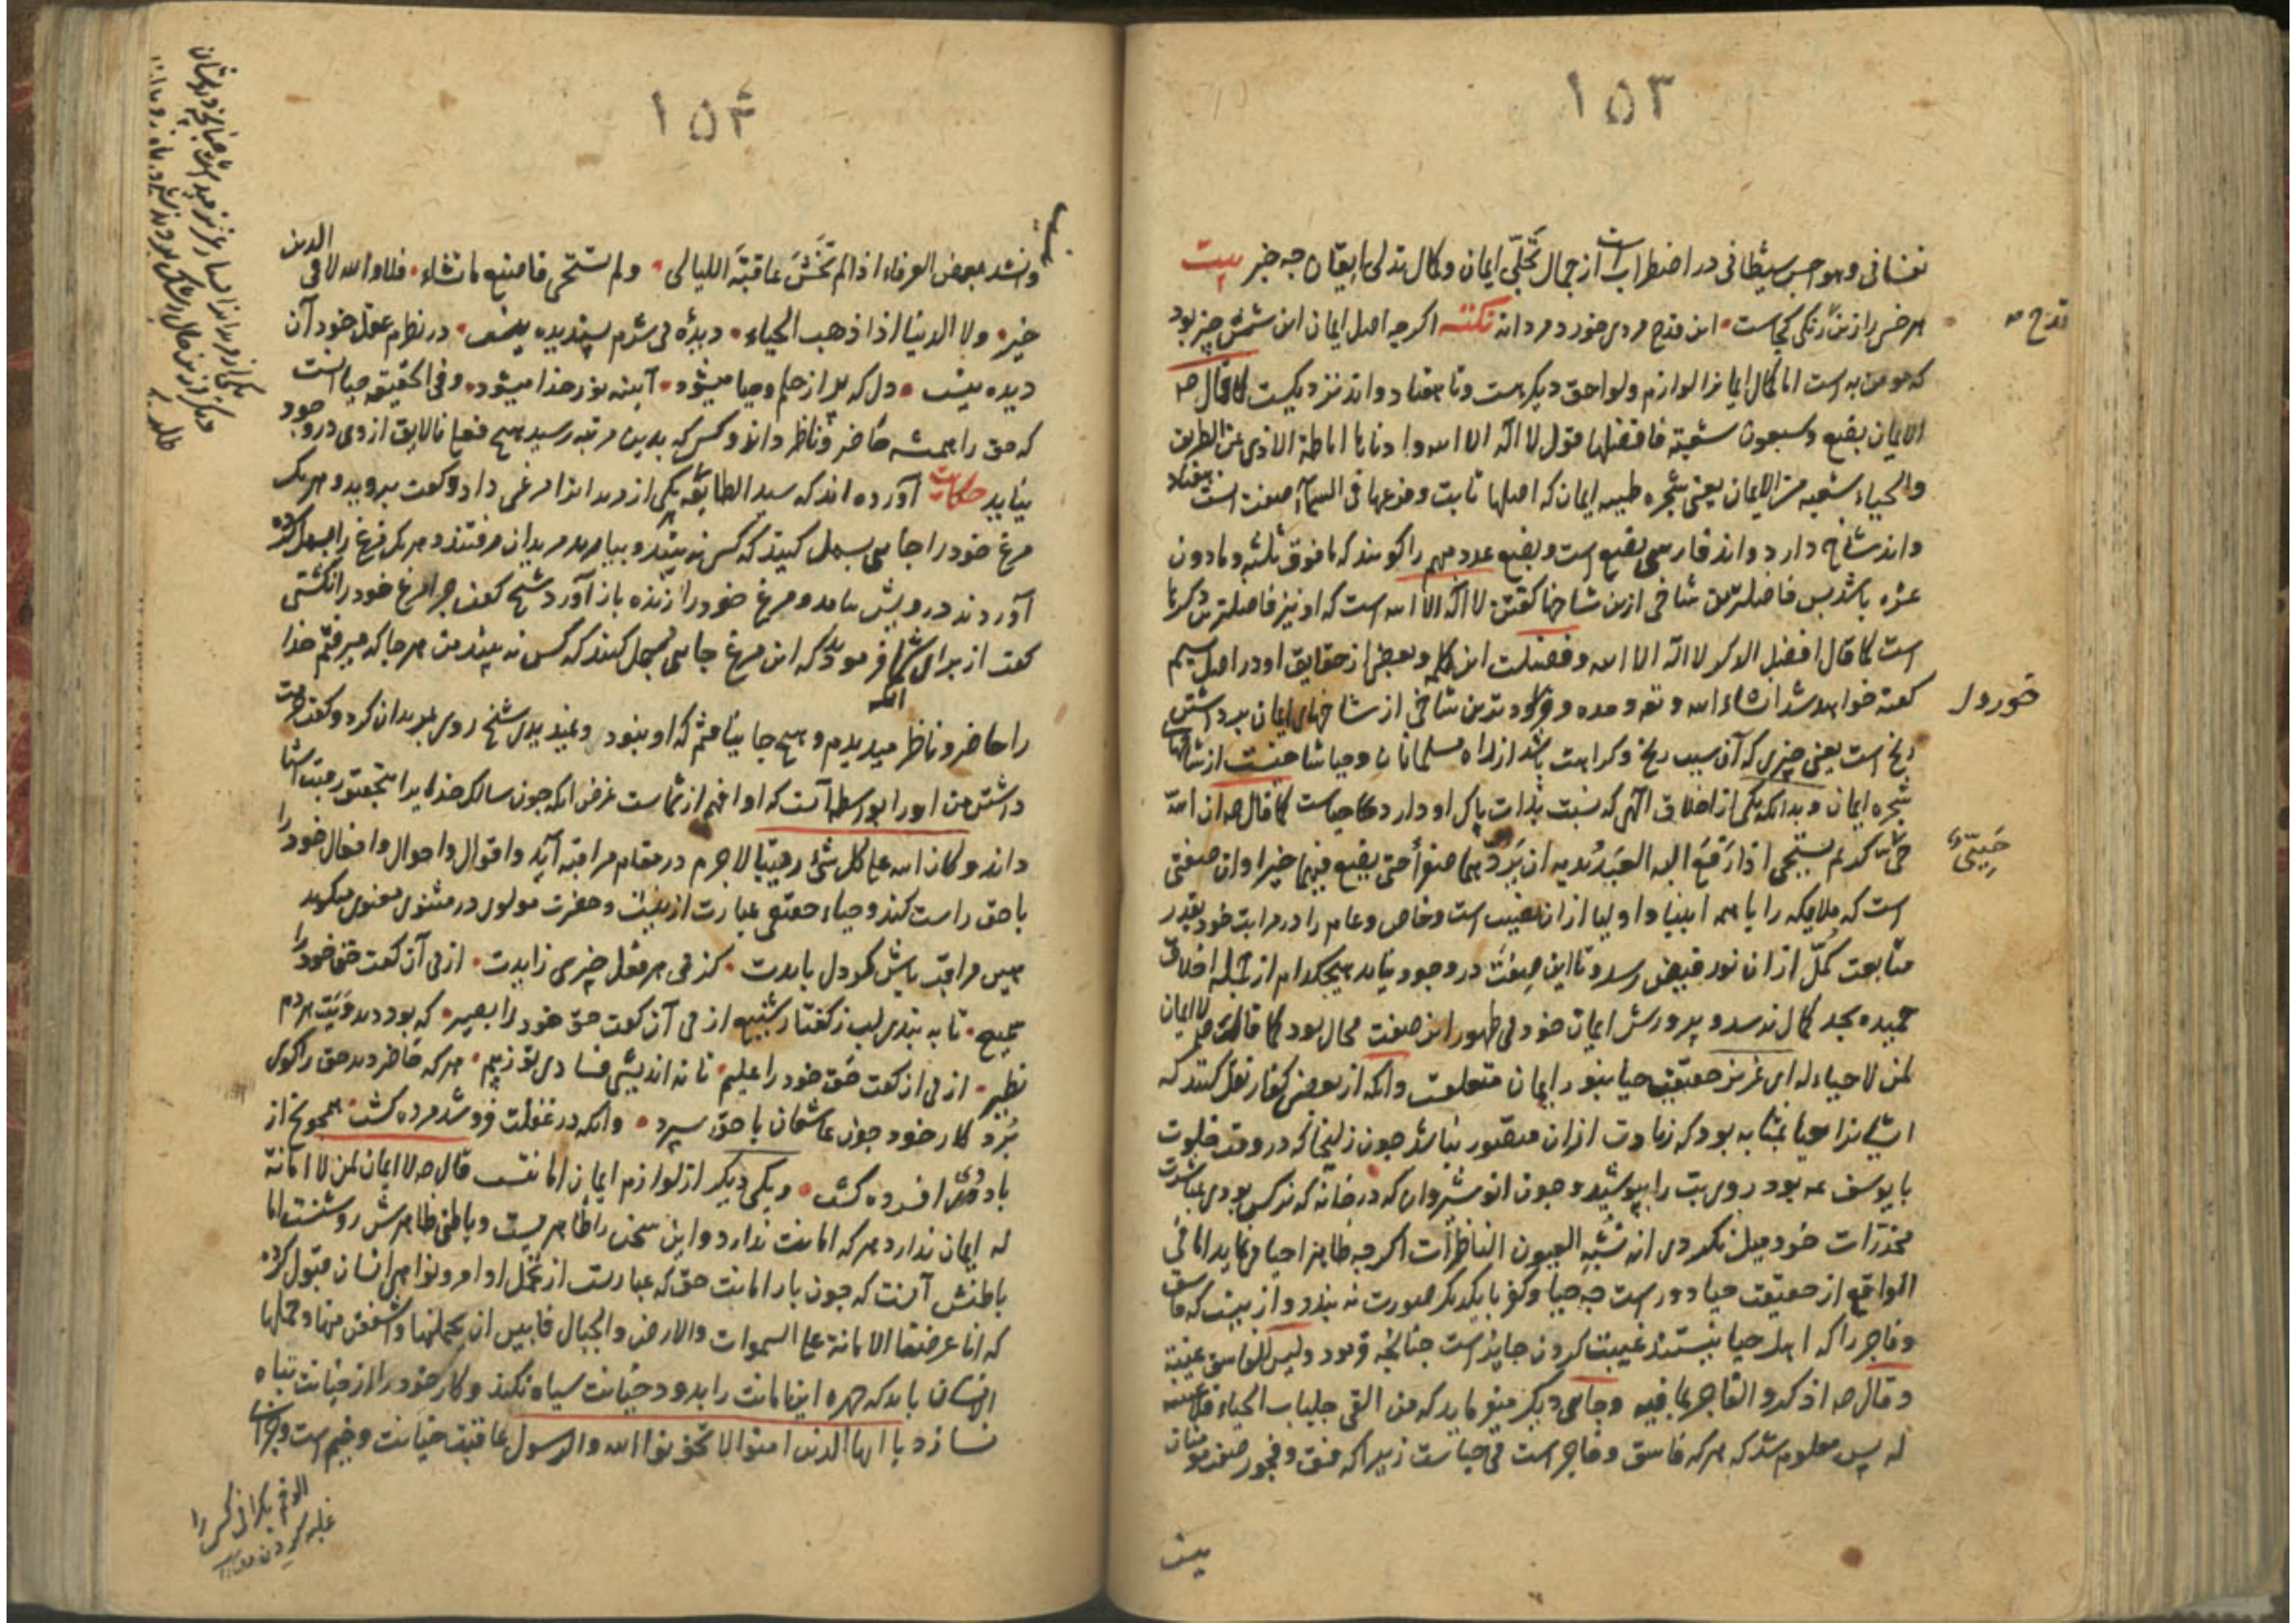 ۱۵۳
نفسانی وهواجس شیطانی در اضطراب است از جمال تجلّی ایمان وکمال تدلی ایقان چه خبر بیت
هر خس را ازین رنگی کجاست این قدح مردی خورد مردانه نکته اکرچه اصل ایمان این شش چیز بود
که مومن به است اما کمال ایمانرا لوازم ولواحق دیکر هست وتا هفتاد واند نزدیکست کما قال صم
الایمان بضع وسبعون شعبة فافضلها قول لا اله الا الله وادناها اماطة الاذی عن الطریق
والحیاء شعبه من الایمان یعنی شجره طیبه ایمان که اصلها ثابت وفرعها فی السماء صفت است هفتاد
واند شاخ دارد واند فارسی بضع است وبضع عدد مبهم را کویند که ما فوق ثلثه وما دون
عشره باشد پس فاضلترین شاخی ازین شاخها کفتن لا اله الا الله است که او نیز فاضلترین ذکرها
است کما قال افضل الذکر لا اله الا الله وفضیلت این کلمه وبعضی از حقایق او در اصل سیم
کفته خواهد شد ان شاء الله وتعالی وحده وفرود ترین شاخی از شاخهای ایمان برداشتن
رنج است یعنی چیزی که آن سبب رنج وکراهت باشد از راه مسلمانان وحیا شاخیست از شاخهاء
شجره ایمان وبدانکه یکی از اخلاق الهی که نسبت بذات پاک او دارد حیاست کما قال صم ان الله
حیّ کریم یستحیی اذا رفع الیه العبد یدیه ان یردّهما صفراً حتی یضع فیهما خیرا وآن صفتی
است که ملایکه را با همه انبیا واولیا از ان نصیب است وخاص وعام را در مراتب خود بقدر
متابعت کلّ از ان نور فیض رسد وتا این صفت در وجود نیاید هیچکدام از جمله اخلاق
حمیده بحد کمال نرسد وپرورش ایمان خود بی ظهور این صفت محال بود کما قال صم لا ایمان
لمن لا حیاء له ای عزیز حقیقت حیا بنور ایمان متعلقست وآنکه از بعضی کفار نقل کنند که
ایشانرا حیا بمثابه بود که زیادت از ان متصور نباشد چون زلیخا که در وقت خلوت
با یوسف عم بود روی بت را بپوشید وچون انوشیروان که در خانه که نرکس بودی بمباشرت
مخدرات خود میل نکردی انه تشبه العیون الناظرات اکرچه ظاهرا حیا می نماید اما فی
الواقع از حقیقت حیا دورست چه حیا وکفر با یکدیکر صورت نه بندد واز ینست که فاسق
وفاجر را که اهل حیا نیستند غیبت کردن جایز است چنانچه فرمود ولیس للفاسق غیبة
وقال صم اذکروا الفاجر بما فیه وجای دیکر میفرماید که من القی جلباب الحیاء فلا غیبة
له پس معلوم شد که هر که فاسق وفاجر است بی حیاست زیرا که فسق وفجور صفت
بیت
قدح
خوردل
حییّ
۱۵۴
وانشد بعض العرفاء اذا لم تخش عاقبة اللیالی ولم تستحی فاصنع ما تشاء فلا والله لا فی الدین
خیر ولا الدنیا اذا ذهب الحیاء دیدهٔ بی شرم پسندیده نیست در نظر عقل خود آن
دیده نیست دل که پر از حلم وحیا میشود آینه نور خدا میشود وفی الحقیقه حیا آنست
که حق را همیشه حاضر وناظر داند وکس که بدین مرتبه رسید هیچ فعل نالایق از وی در وجود
نیاید حکایت آورده اند که سید الطایفه یکی از مریدانرا مرغی داد وکفت بروید وهر یک
مرغ خود را جایی بسمل کنید که کس نه بیند وبیارید مریدان رفتند وهر یک مرغ را بسمل کرده
آوردند درویشی بیامد ومرغ خود را زنده باز آورد شیخ کفت چرا مرغ خود را نکشتی
کفت از برای آنکه شما فرمودید که این مرغ جایی بسمل کنید که کس نه بیند من هر جا که میرفتم خدا
را حاضر وناظر میدیدم وهیچ جا نیافتم که او نبود ونمیدید شیخ روی بمریدان کرد وکفت
داشتن من او را بواسطه آنست که او افهم از شماست غرض آنکه چون سالک خدایرا بتحقیق رقیب اشیا
داند وکان الله علی کل شیء رقیبا لاجرم در مقام مراقبه آید واقوال واحوال وافعال خود را
با حق راست کند وحیاء حقیقی عبارت ازینست وحضرت مولوی در مثنوی معنوی میکوید
پس مراقب باش کر دل بایدت کز پی هر فعل چیزی زایدت از پی آن کفت حق خود را
سمیع تا به بندی لب ز کفتار شنیع از پی آن کفت حق خود را بصیر که بود دید ویت هر دم
نظیر از پی آن کفت حق خود را علیم تا نه اندیشی فسادی تو ز بیم هر که حاضر دید حق را کوی
برد کار خود چون عاشقان با حق سپرد وانکه در غفلت فرو شد مرده کشت همچو یخ از
باد دی افسرده کشت ویکی دیکر از لوازم ایمان امانتست قال صم لا ایمان لمن لا امانة
له ایمان ندارد هر که امانت ندارد واین سخن را ظاهریست وباطنی ظاهرش روشنست اما
باطنش آنست که چون بار امانت حق که عبارتست از تحمّل اوامر ونواهی انسان قبول کرده
که انا عرضنا الامانة علی السموات والارض والجبال فابین ان یحملنها واشفقن منها وحملها
الانسان باید که چهره این امانت را بدود خیانت سیاه نکند وکار خود را از خیانت تباه
نسازد یا ایها الذین امنوا لا تخونوا الله والرسول عاقبت خیانت وخیم است